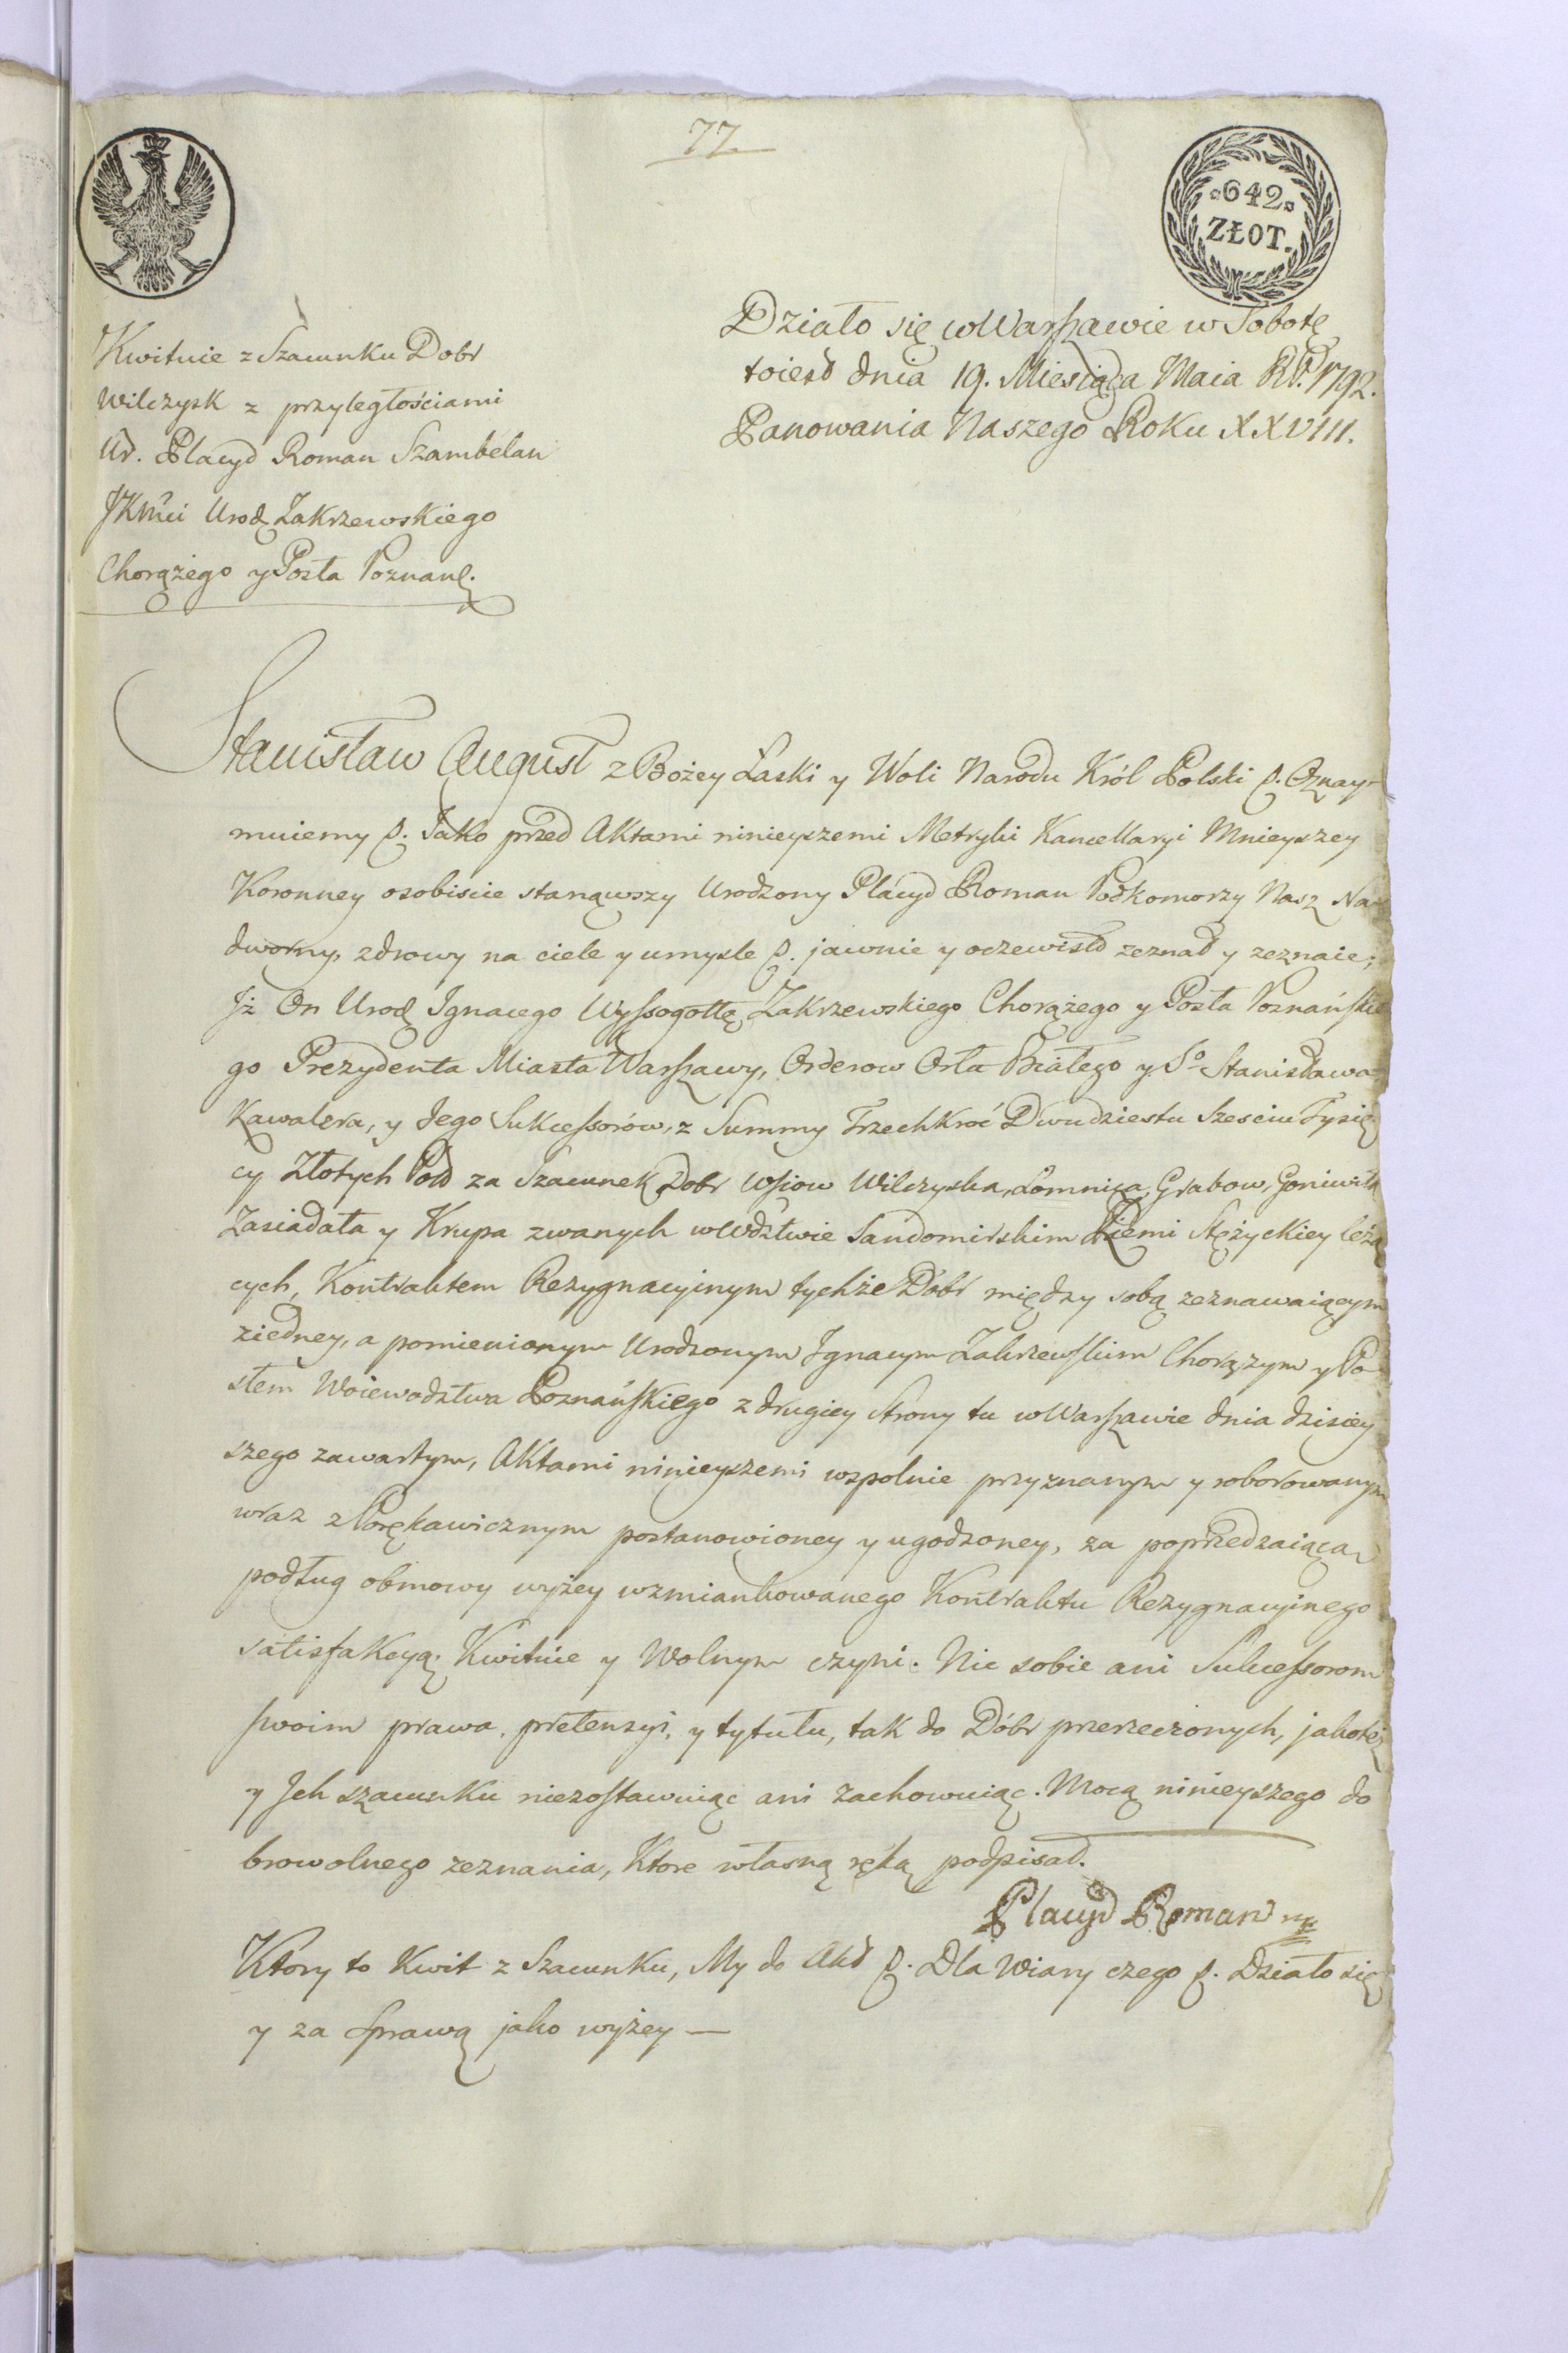 77
642
ZŁOT.
Działo się w Warszawie w Sobotę
toiest dnia 19. Miesiąca Maia RP. 1792.
Panowania Naszego Roku XXVIII.
Kwituie z Szacunku Dobr
Wilczysk z przyległościami
Ur. Placyd Roman Szambelan
JKMci Urodz Zakrzewskiego
Chorążego y Posła Poznansz.
Stanisław August z Bożey Łaski y Woli Narodu Król Polski p. Oznay-
muiemy p. Jako przed Aktami ninieyszemi Metryki Kancellaryi Mnieyszey
Koronney osobiscie stanąwszy Urodzony Placyd Roman Podkomorzy Nasz Na-
dworny, zdrowy na ciele y umysle p. jawnie y oczewisto zeznał y zeznaie;
Jż On Urodz Ignacego Wyssogottę Zakrzewskiego Chorążego y Posła Poznańskie
go Prezydenta Miasta Warszawy, Orderow Orła Białego y So Stanisława
Kawalera, y Jego Sukcessorów, z Summy Trzechkroć Dwudziestu Szesciu Tysię
cy Złotych Pol za Szacunek Dobr Wsiow Wilczyska, Łomnica, Grabow, Goniwilk
Zasiadała y Krupa zwanych w Wdztwie Sandomirskim Ziemi Stężyckiey leżą
cych, Kontraktem Rezygnacyinym tychże Dobr między sobą zeznawaiącym
ziedney, a pomienionym Urodzonym Jgnacym Zakrzewskim Chorązym y Po
słem Woiewodztwa Poznańskiego z drugiey strony tu w Warszawie dnia dzisiey
szego zawartym, Aktami ninieyszemi wspolnie przyznanym y roborowanym
wraz z Porękawicznym postanowioney y ugodzoney, za poprzedzaiącą
podług obmowy wyżey wzmiankowanego Kontraktu Rezygnacyinego
satisfakcyą; Kwituie y Wolnym czyni. Nic sobie ani Sukcessorom
swoim prawa, pretensyi, y tytułu, tak do Dóbr przerzeczonych, jakoteż
y Jch szacunku niezostawuiąc ani zachowuiąc. Mocą ninieyszego do
browolnego zeznania, Ktore własną ręką podpisał.
Placyd Roman mp
Ktory to Kwit z Szacunku, My do Akt p. Dla Wiary czego p. Działo się
y za Sprawą jako wyżey —